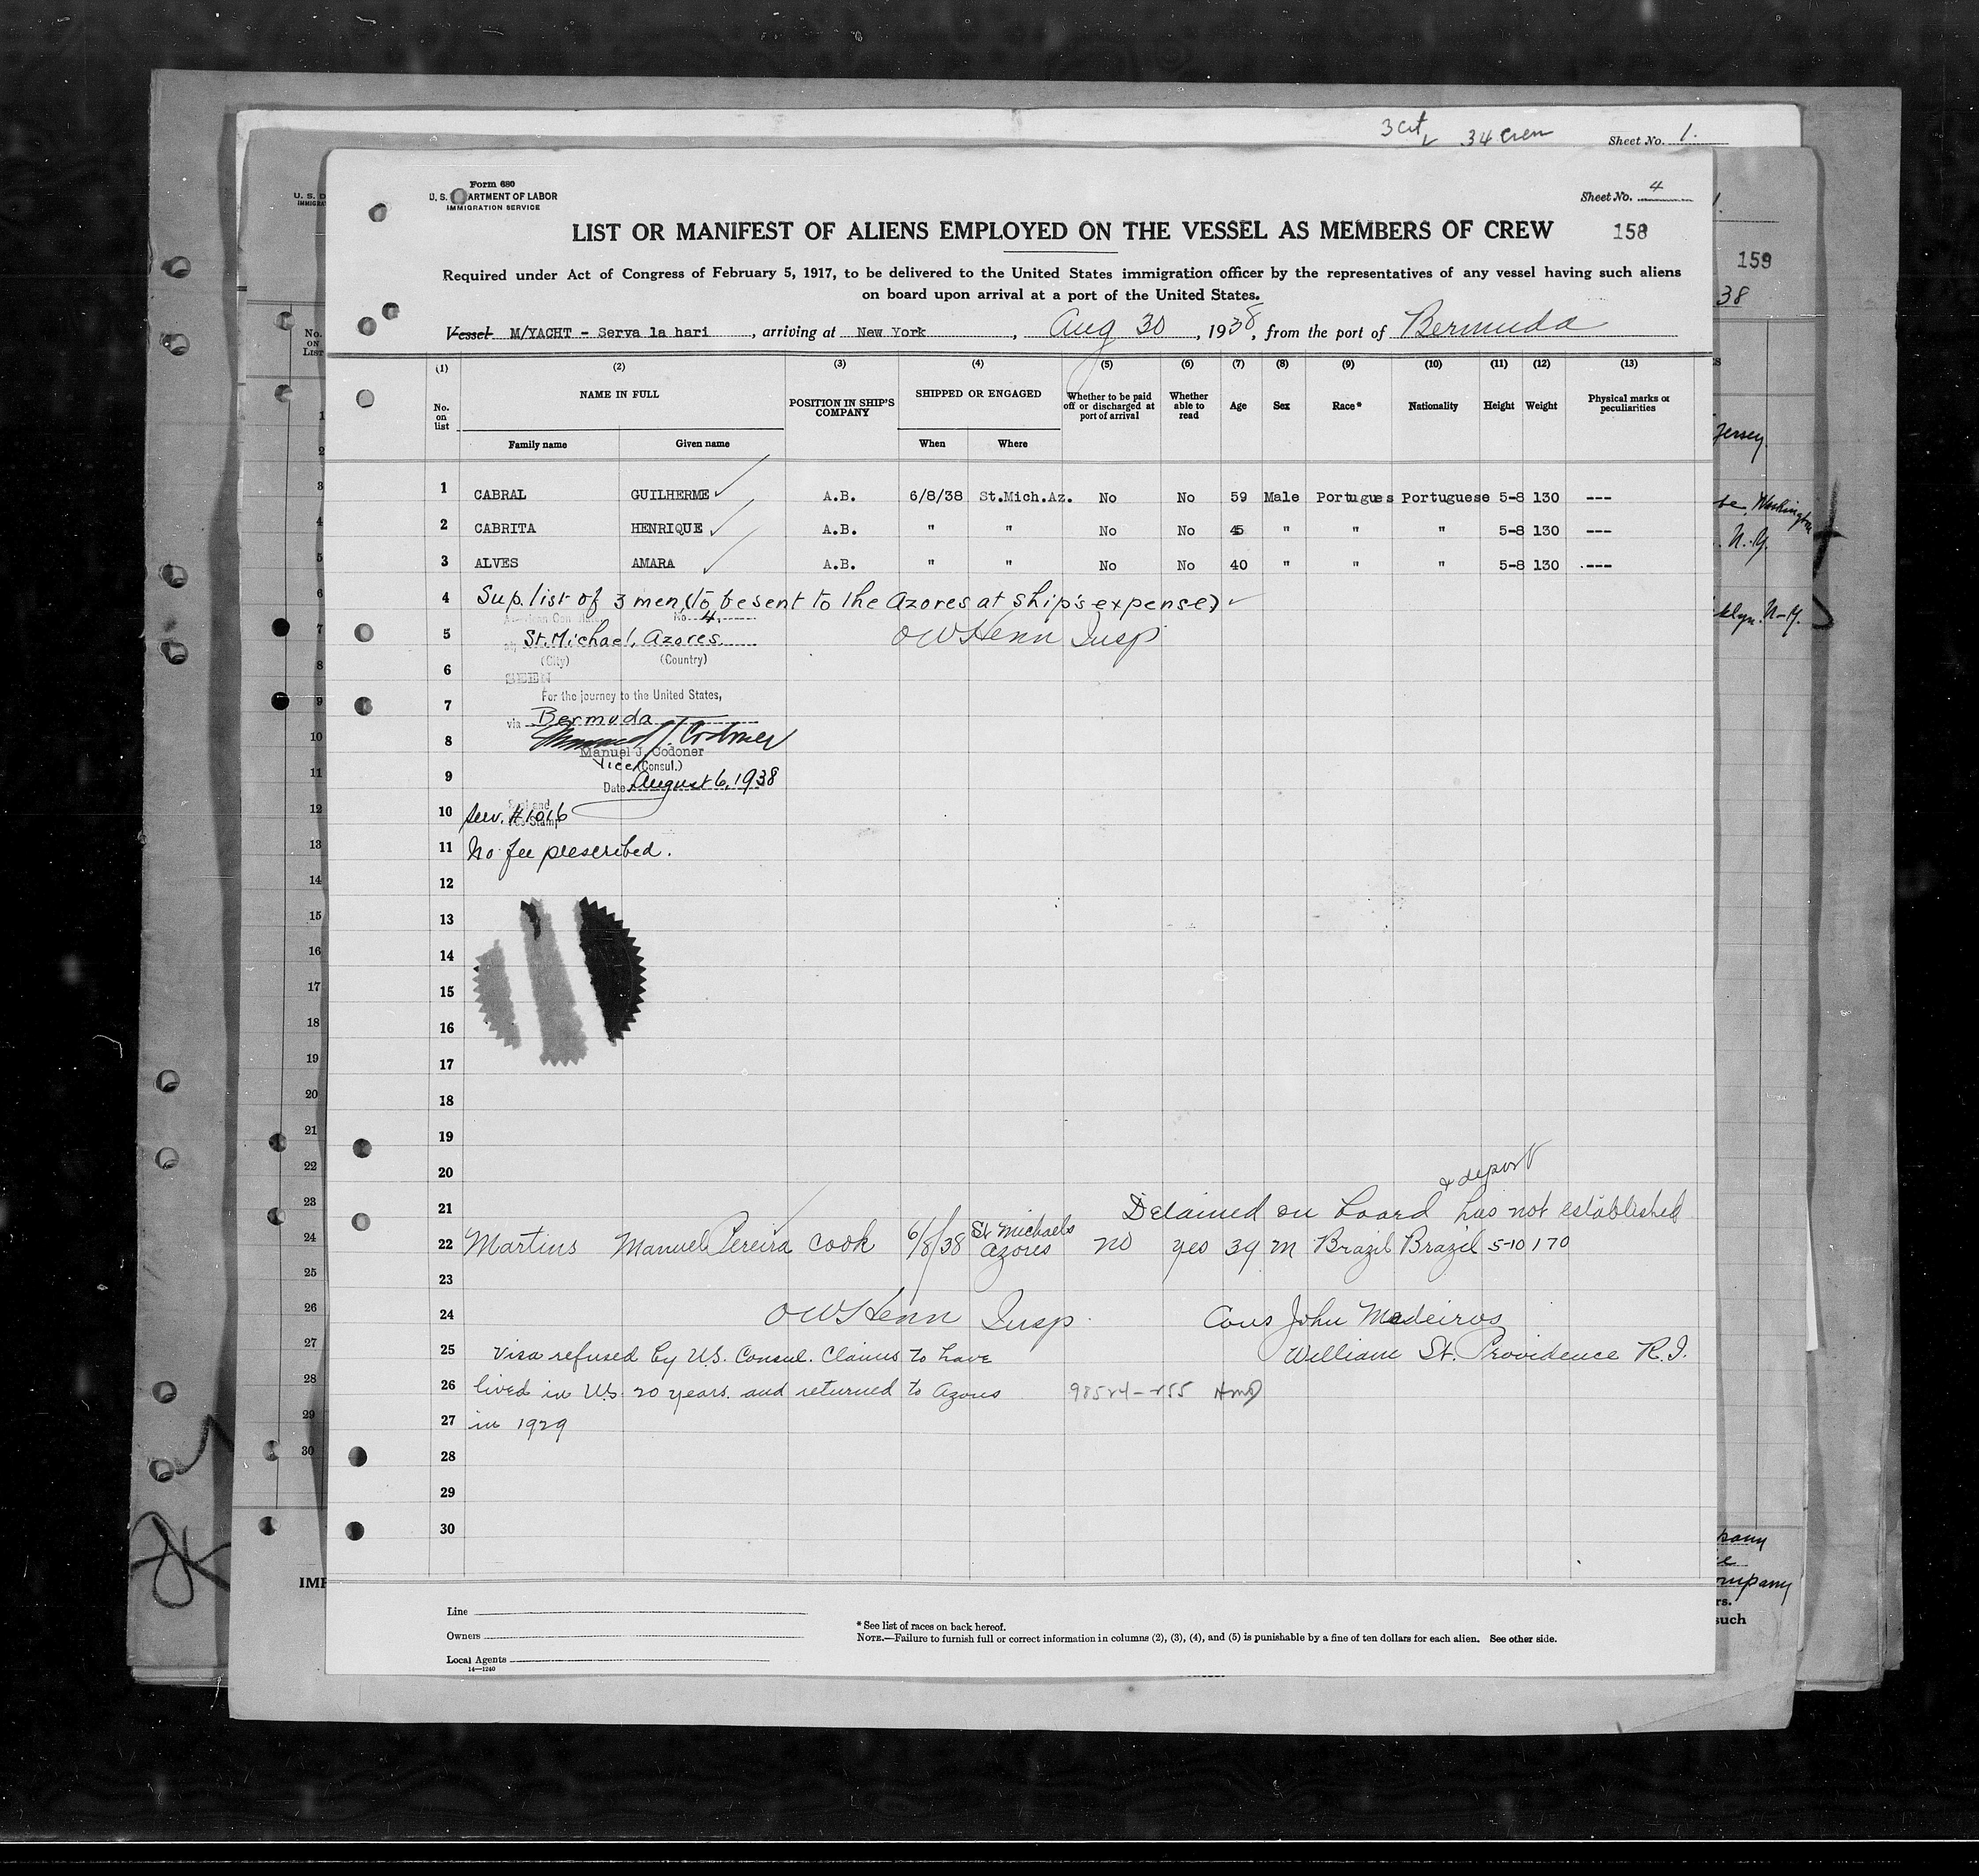 3 Cit 34 Crew Sheet No. 1.
Form 680
U. S. DEPARTMENT OF LABOR
IMMIGRATION SERVICE
Sheet No. 4
LIST OR MANIFEST OF ALIENS EMPLOYED ON THE VESSEL AS MEMBERS OF CREW 158
Required under Act of Congress of February 5, 1917, to be delivered to the United States immigration officer by the representatives of any vessel having such aliens
on board upon arrival at a port of the United States.
Vessel M/YACHT - Serva la hari, arriving at New York, Aug 30, 1938, from the port of Bermuda
(1) (2) (3) (4) (5) (6) (7) (8) (9) (10) (11) (12) (13)
No. on list NAME IN FULL POSITION IN SHIP'S COMPANY SHIPPED OR ENGAGED Whether to be paid off or discharged at port of arrival Whether able to read Age Sex Race* Nationality Height Weight Physical marks or peculiarities
Family name Given name When Where
1 CABRAL GUILHERME A.B. 6/8/38 St.Mich.Az. No No 59 Male Portugues Portuguese 5-8 130 ---
2 CABRITA HENRIQUE A.B. " " No No 45 " " " 5-8 130 ---
3 ALVES AMARA A.B. " " No No 40 " " " 5-8 130 ---
4 Sup. list of 3 men, (to be sent to the Azores at ship's expense)
No. 4.
5 St. Michael, Azores OW Henn Insp
(City) (Country)
6 SEEN
For the journey to the United States,
7 via Bermuda
8 Manuel J. Codoner
Manuel J. Codoner
Vice (Consul.)
9 Date August 6, 1938
10 Serv. #1016
11 No fee prescribed.
12
13
14
15
16
17
18
19
20 & deport
21 Detained on board has not established
22 Martins Manuel Pereira cook 6/8/38 St Michaels Azores no yes 39 m Brazil Brazil 5-10 170
23
24 OW Henn Insp. Cous John Medeiros
25 Visa refused by U.S. Consul. Claims to have William St. Providence R.I.
26 lived in U.S. 20 years. and returned to Azores
27 in 1929
28
29
30
Line
Owners
Local Agents
14—1240
* See list of races on back hereof.
NOTE.—Failure to furnish full or correct information in columns (2), (3), (4), and (5) is punishable by a fine of ten dollars for each alien. See other side.
159
38
Jersey.
Washington
N.Y.
N-Y.
such